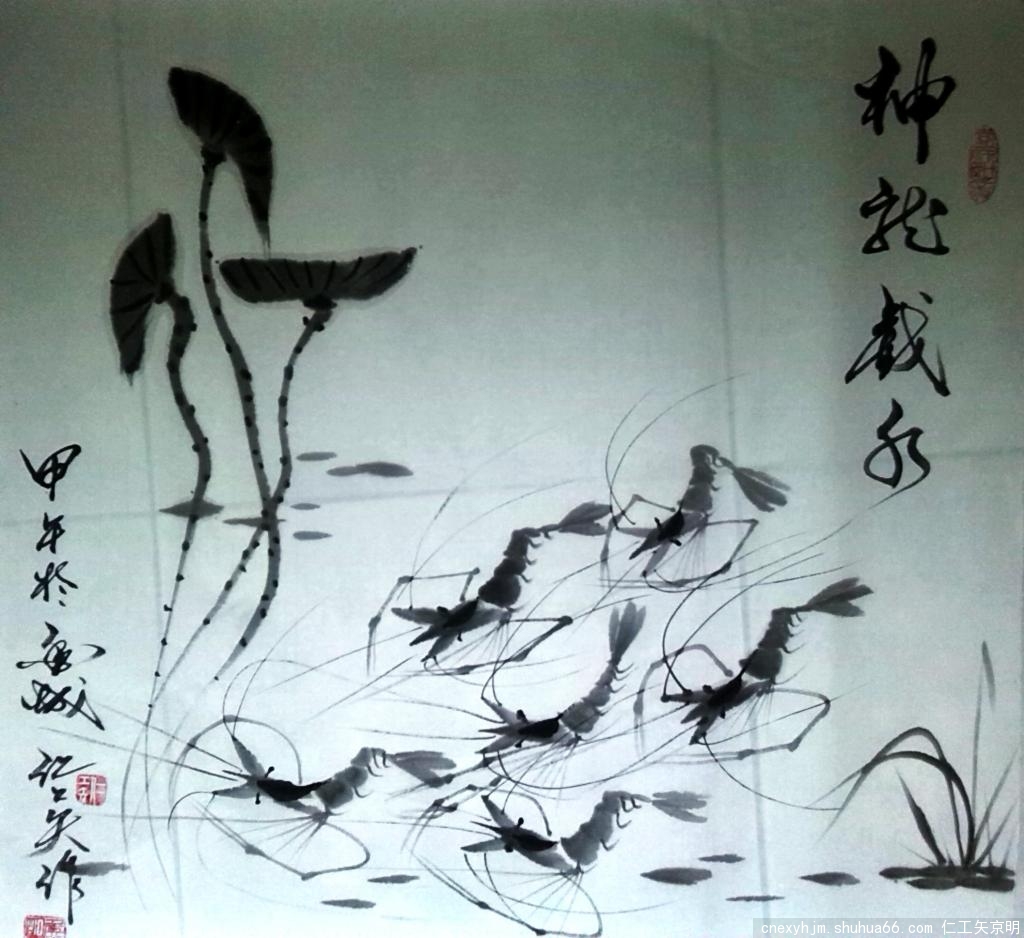 神龍戲水
甲午於城仁工矢作
cnexyhjm.shuhua66.com 仁工矢京明